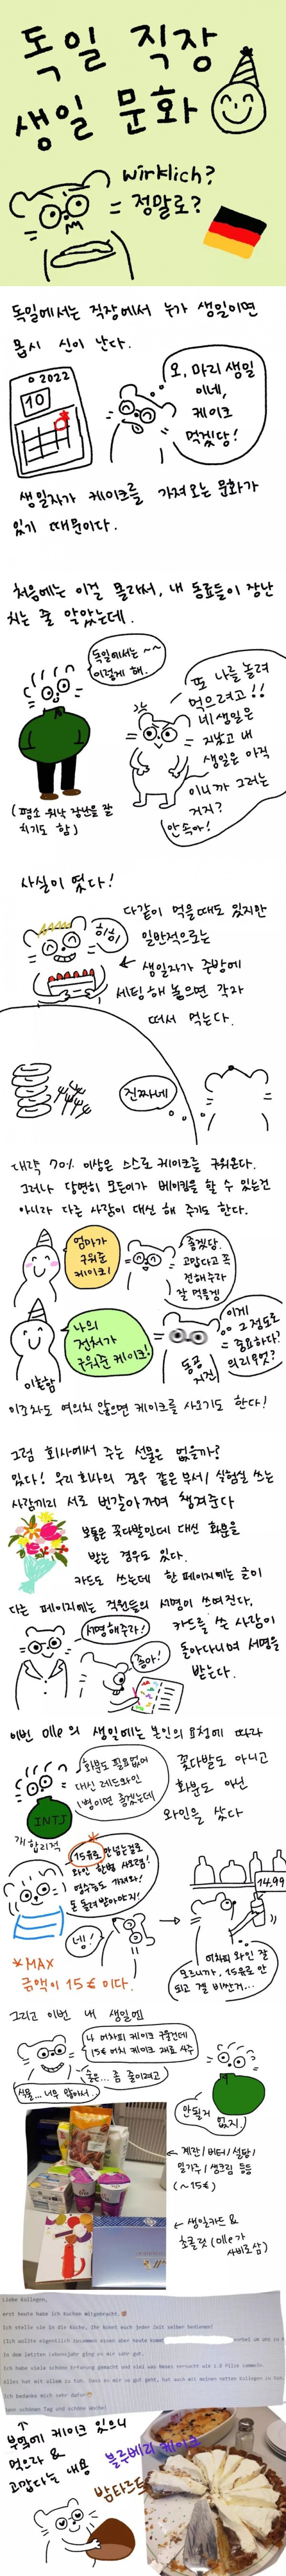 독일 직장
생일 문화
wirklich?
= 정말로?
독일에서는 직장에서 누가 생일이면
몹시 신이 난다.
2022
10
오, 마리 생일
이네,
케이크
먹겠당!
생일자가 케이크를 가져오는 문화가
있기 때문이다.
처음에는 이걸 몰라서, 내 동료들이 장난
치는 줄 알았는데.
독일에서는~~
이렇게 해.
또 나를 놀려
먹으려고!!
네 생일은
지났고 내
생일은 아직
이니까 그러는
거지?
안속아!
(평소 워낙 장난을 잘
치기도 함)
사실이었다!
다같이 먹을때도 있지만
일반적으로는
생일자가 주방에
세팅해 놓으면 각자
떠서 먹는다.
히히
진짜네
대략 70% 이상은 스스로 케이크를 구워온다.
그러나 당연히 모든이가 베이킹을 할 수 있는건
아니라 다른 사람이 대신 해 주기도 한다.
엄마가
구워준
케이크!
좋겠당.
고맙다고 꼭
전해주라
잘 먹을게
나의
전처가
구워준 케이크!
이혼함
동공
지진
이게
그 정도로
중요하다?
의리모얏?
이조차도 여의치 않으면 케이크를 사오기도 한다!
그럼 회사에서 주는 선물은 없을까?
있다! 우리 회사의 경우 같은 부서/실험실 쓰는
사람끼리 서로 번갈아가며 챙겨준다
보통은 꽃다발인데 대신 화분을
받는 경우도 있다.
카드도 쓰는데 한 페이지에는 글이
다른 페이지에는 직원들의 서명이 쓰여진다.
카드를 쓴 사람이
돌아다니며 서명을
받는다.
서명해주라!
좋아!
이번 Olle의 생일에는 본인의 요청에 따라
꽃다발도 아니고
화분도 아닌
와인을 샀다
화분도 필요없어
대신 레드와인
1병이면 좋겠는데
INTJ
개합리적
15유로 안넘는걸로
와인 한병 사오렴!
영수증도 가져와!
돈 돌려받아야지!
넵!
14.99
어차피 와인 잘
모르니까, 15유로 안
되고 젤 비싼거...
*MAX
금액이 15€ 이다.
그리고 이번 내 생일에
나 어차피 케이크 구울건데
15€ 어치 케이크 재료 사주
식물... 너무 많아서.
안될거
없지.
← 계란/버터/설탕/
밀가루/생크림 등등
(~15€)
← 생일카드 &
초콜릿 (Olle가
사비로 삼)
Liebe Kollegen,
erst heute habe ich Kuchen mitgebracht.
Ich stelle sie in die Küche, ihr könnt euch jeder Zeit selber bedienen!
In dem letzten Lebensjahr ging es mir sehr gut.
Ich bedanke mich sehr dafür
부엌에 케이크 있으니
먹으라 &
고맙다는 내용
블루베리 케이크
밤타르트